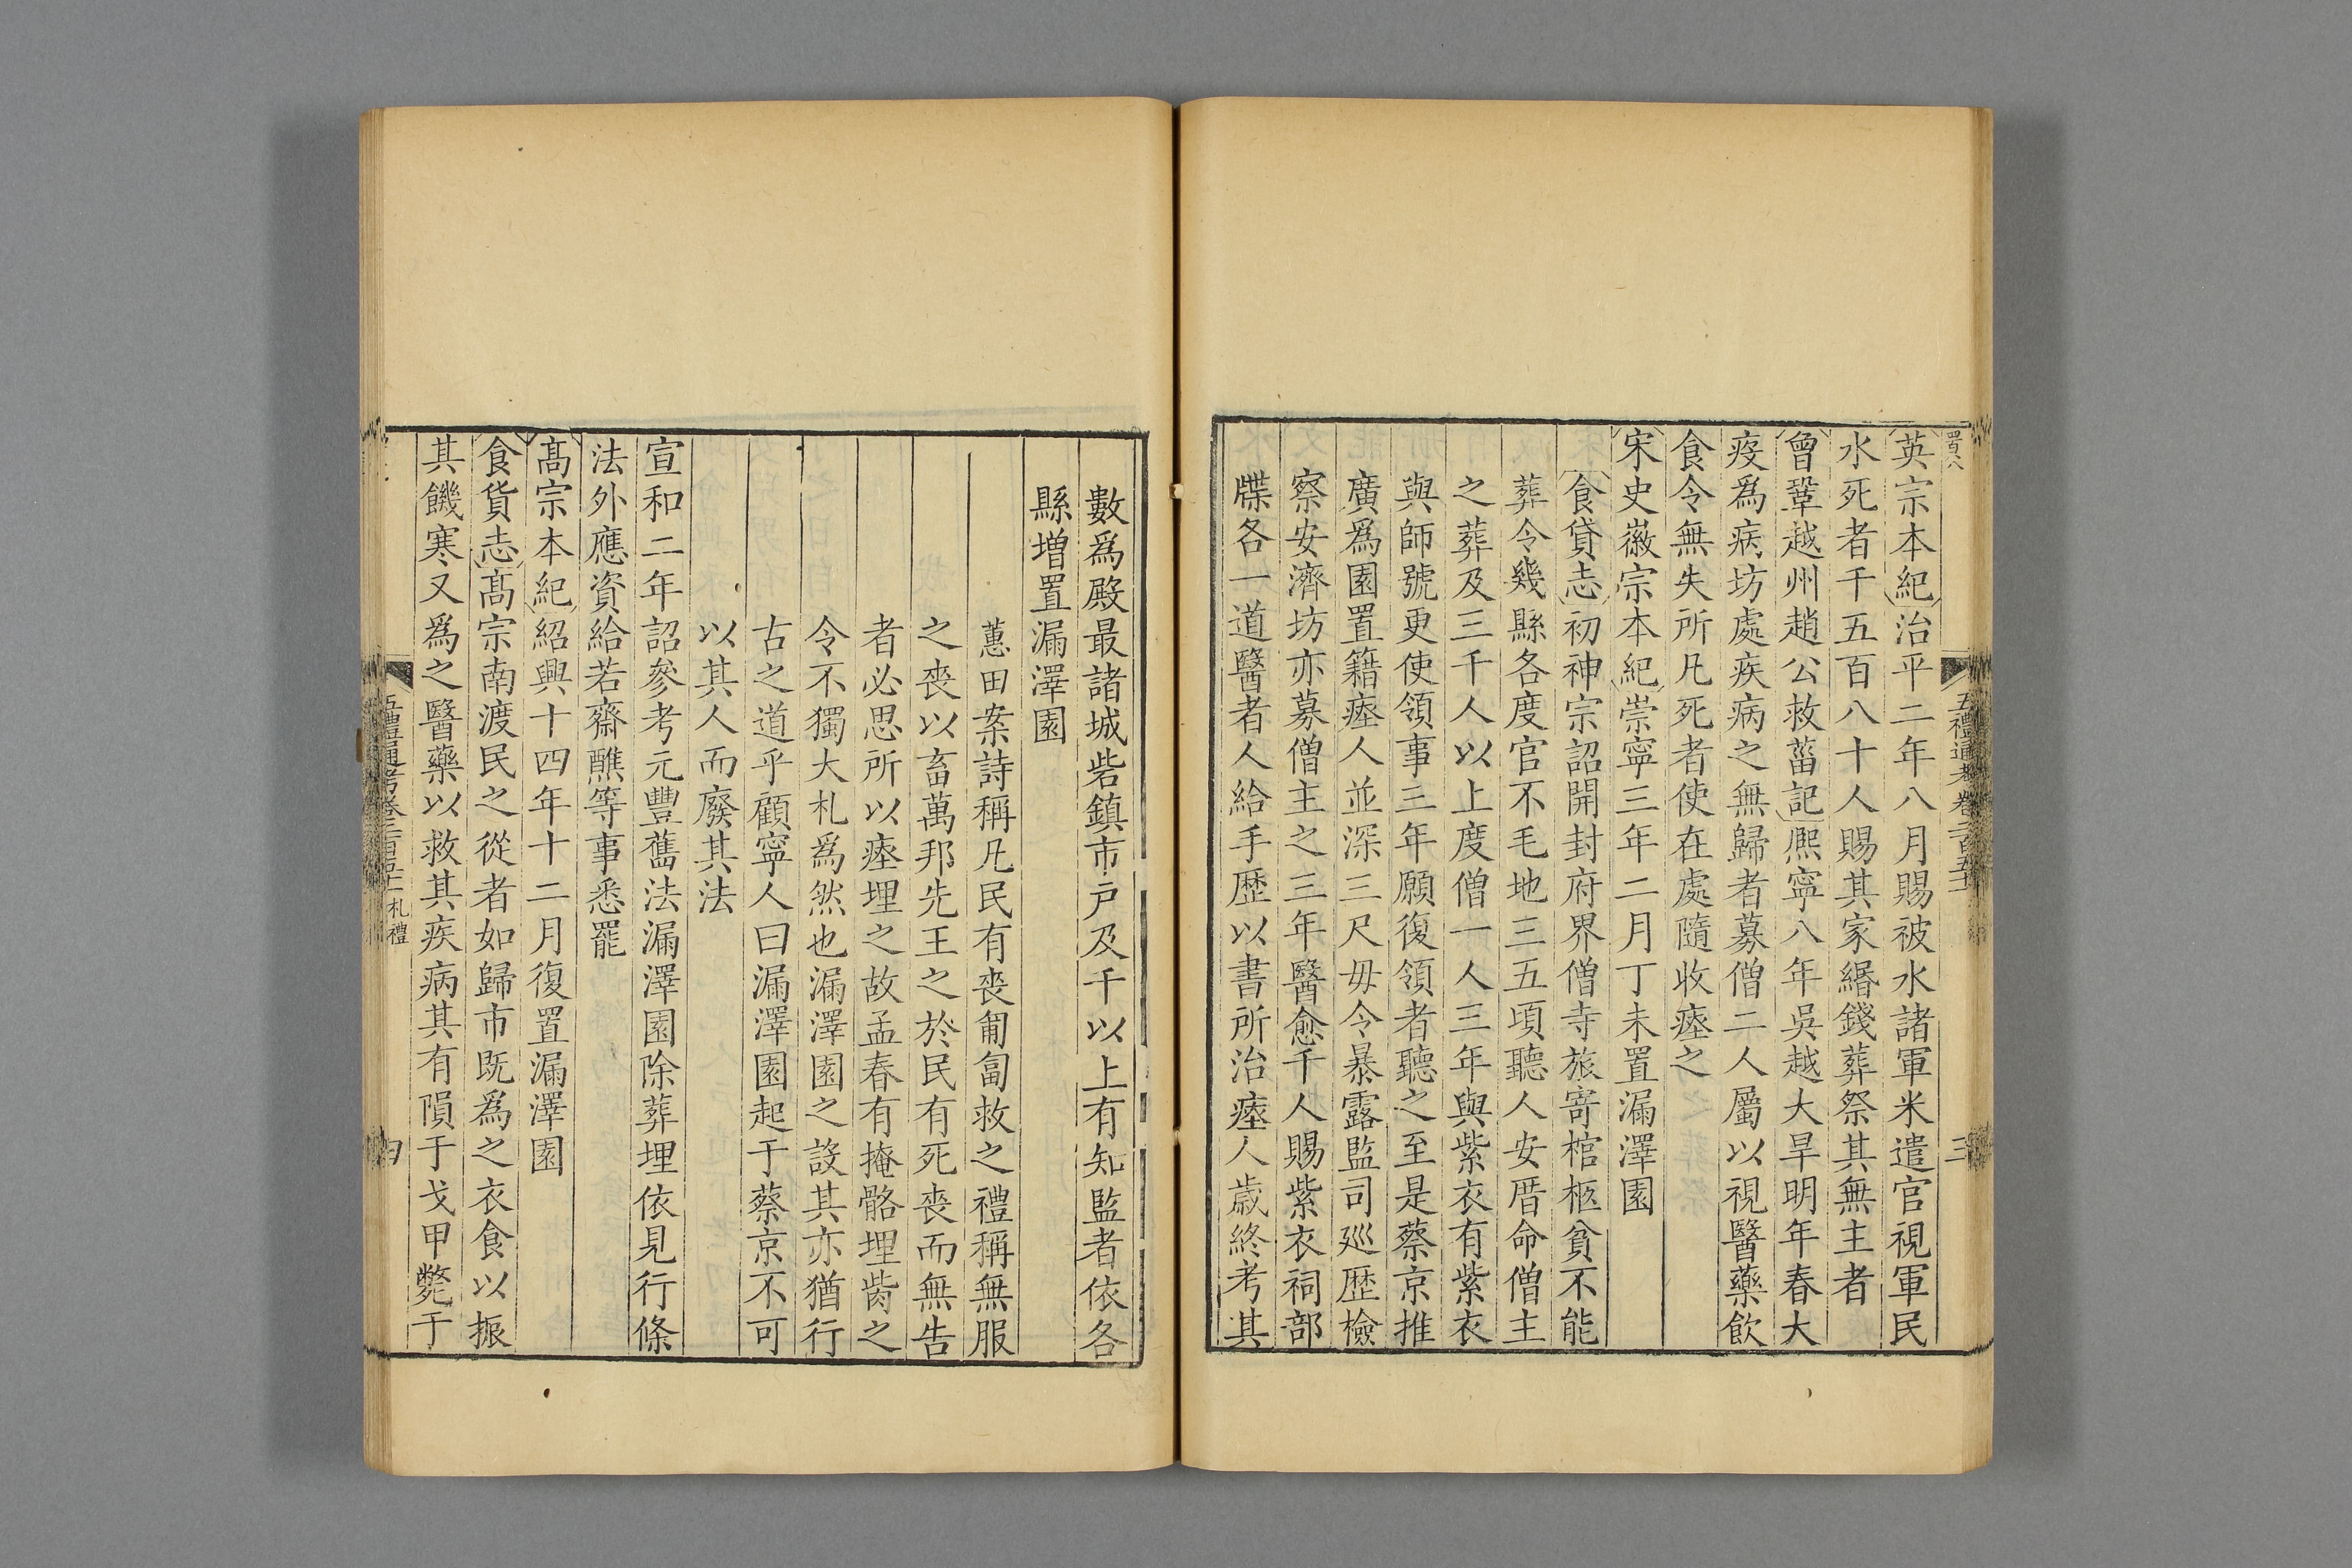 英宗本紀治平二年八月賜被水諸軍米遣官視軍民
水死者千五百八十人賜其家緡錢葬祭其無主者
曾鞏越州趙公救菑記熈寧八年吳越大旱明年春大
疫爲病坊處疾病之無歸者募僧二人屬以視醫藥飲
食令無失所凡死者使在處隨收瘞之
宋史徽宗本紀崇寧三年二月丁未置漏澤園
食貨志初神宗詔開封府界僧寺旅寄棺柩貧不能
葬令畿縣各度官不毛地三五頃聽人安厝命僧主
之葬及三千人以上度僧一人三年與紫衣有紫衣
與師號更使領事三年願復領者聽之至是蔡京推
廣爲園置籍瘞人並深三尺毋令暴露監司廵歴檢
察安濟坊亦募僧主之三年醫愈千人賜紫衣祠部
牒各一道醫者人給手歴以書所治瘞人歲終考其
數爲殿最諸城砦鎮市户及千以上有知監者依各
縣増置漏澤園
蕙田案詩稱凡民有喪匍匐救之禮稱無服
之喪以畜萬邦先王之於民有死喪而無告
者必思所以瘞埋之故孟春有掩骼埋胔之
令不獨大札爲然也漏澤園之設其亦猶行
古之道乎顧寧人曰漏澤園起于蔡京不可
以其人而廢其法
宣和二年詔參考元豐舊法漏澤園除葬埋依見行條
法外應資給若齋醮等事悉罷
髙宗本紀紹興十四年十二月復置漏澤園
食貨志髙宗南渡民之從者如歸市既爲之衣食以振
其饑寒又爲之醫藥以救其疾病其有隕于戈甲斃于
五禮通考卷二百五十
三
札禮